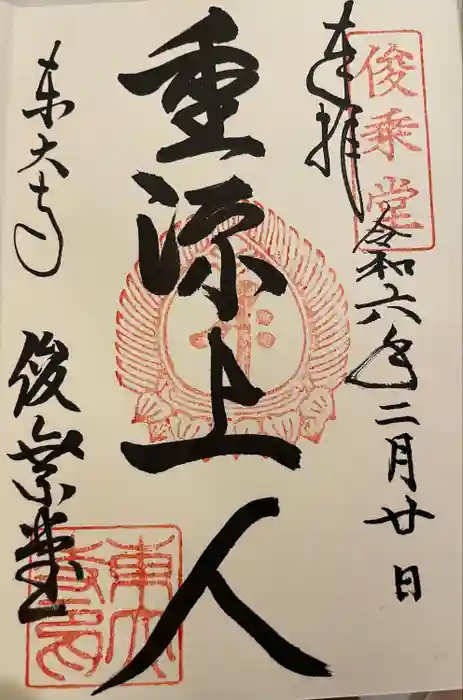 俊乗堂
奉拝
令和六年二月廿日
重源上人
東大寺
俊乗堂